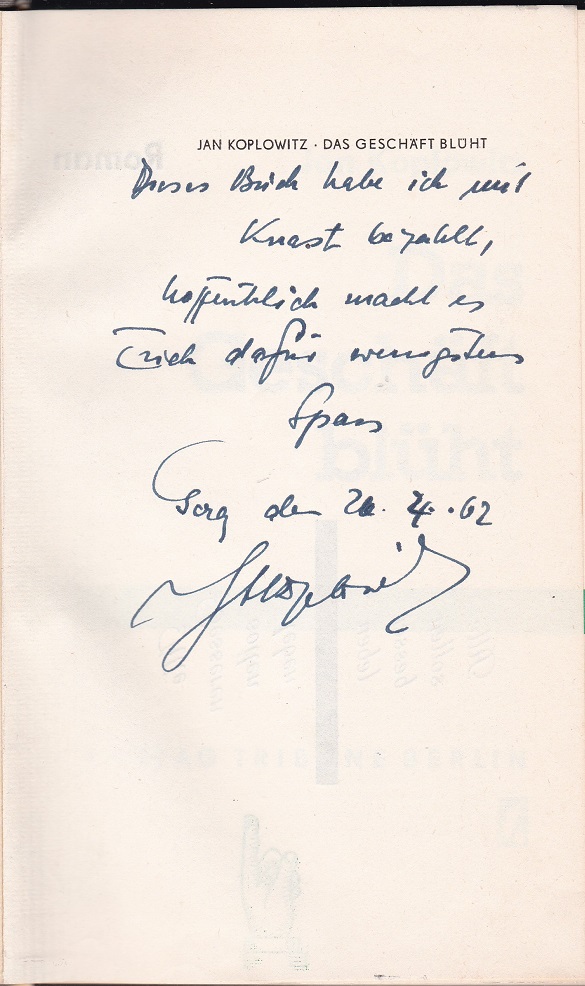 JAN KOPLOWITZ · DAS GESCHÄFT BLÜHT
Dieses Buch habe ich mit
Knast bezahlt,
hoffentlich macht es
Erich dafür wenigstens
Spass
den 20. 4. 62
JKoplowitz
Roman